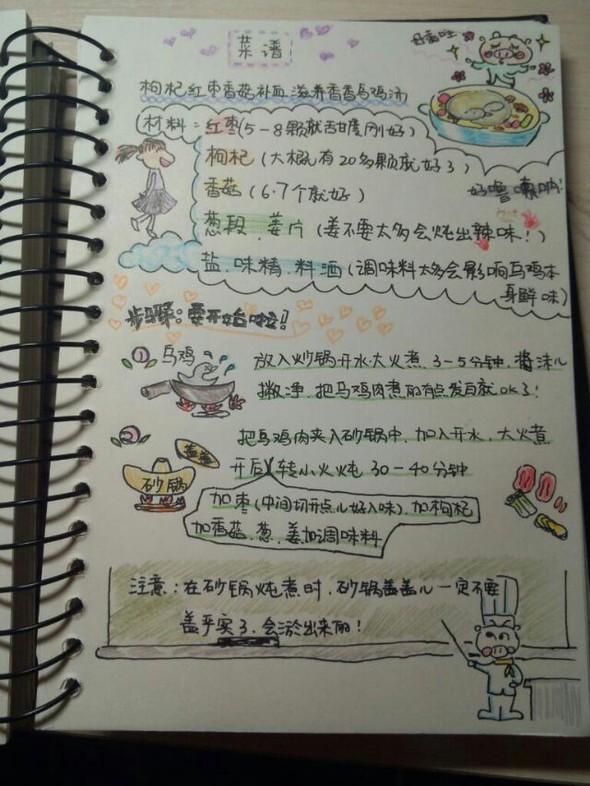 菜谱
好香哇
枸杞红枣香菇补血滋养香香乌鸡汤
(材料:红枣(5-8颗就甜度刚好)
枸杞(大概有20多颗就好了)
香菇(6.7个就好)
好噜噜呐!
葱段、姜片(姜不要太多会炖出辣味!)
盐、味精、料酒(调味料太多会影响乌鸡本
身鲜味)
步骤:要开始啦!
① 乌鸡 放入炒锅开水大火煮、3-5分钟,将沫儿
撇净,把乌鸡肉煮的有点发白就ok了!
② 把乌鸡肉夹入砂锅中,加入开水,大火煮
盖盖 开后转小火炖30-40分钟
砂锅
加枣(中间切开点儿好入味),加枸杞
加香菇、葱、姜加调味料
注意:在砂锅炖煮时,砂锅盖盖儿一定不要
盖严实了,会淤出来的!